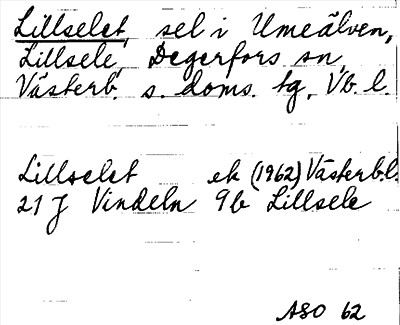 Lillselet, sel i Umeälven,
Lillsele, Degerfors sn,
Västerb. s. doms. tg, Vb. l.
Lillselet ek (1962) Västerb.l.
21 J Vindeln 9b Lillsele
ASO 62